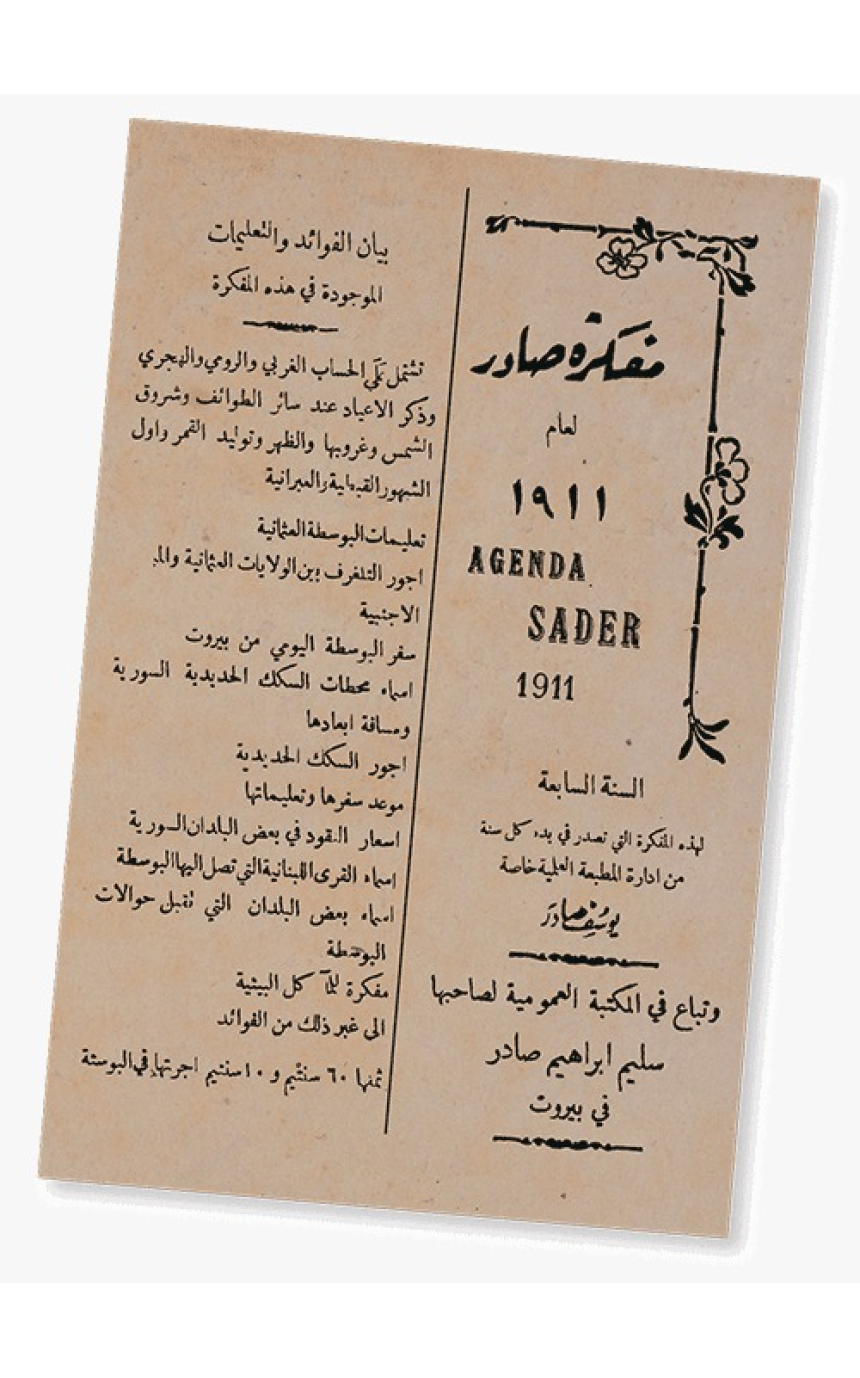 مفكرة صادر
لعام
١٩١١
AGENDA
SADER
1911
السنة السابعة
لهذه المفكرة التي تصدر في بدء كل سنة
من ادارة المطبعة العلمية خاصة
يوسف صادر
وتباع في المكتبة العمومية لصاحبها
سليم ابراهيم صادر
في بيروت
بيان الفوائد والتعليمات
الموجودة في هذه المفكرة
تشتمل على الحساب الغربي والرومي والهجري
وذكر الاعياد عند سائر الطوائف وشروق
الشمس وغروبها والظهر وتوليد القمر واول
الشهور القبطية والعبرانية
تعليمات البوسطة العثمانية
اجور التلغرف بين الولايات العثمانية
الاجنبية
سفر البوسطة اليومي من بيروت
اسماء محطات السكك الحديدية السورية
ومسافة ابعادها
اجور السكك الحديدية
موعد سفرها وتعليماتها
اسعار النقود في بعض البلدان السورية
اسماء القرى اللبنانية التي تصل اليها البوسطة
اسماء بعض البلدان التي تقبل حوالات
البوسطة
مفكرة كل البيئية
الى غير ذلك من الفوائد
ثمنها ٦٠ سنتيم و ١٠ سنتيم اجرتها في البوستة